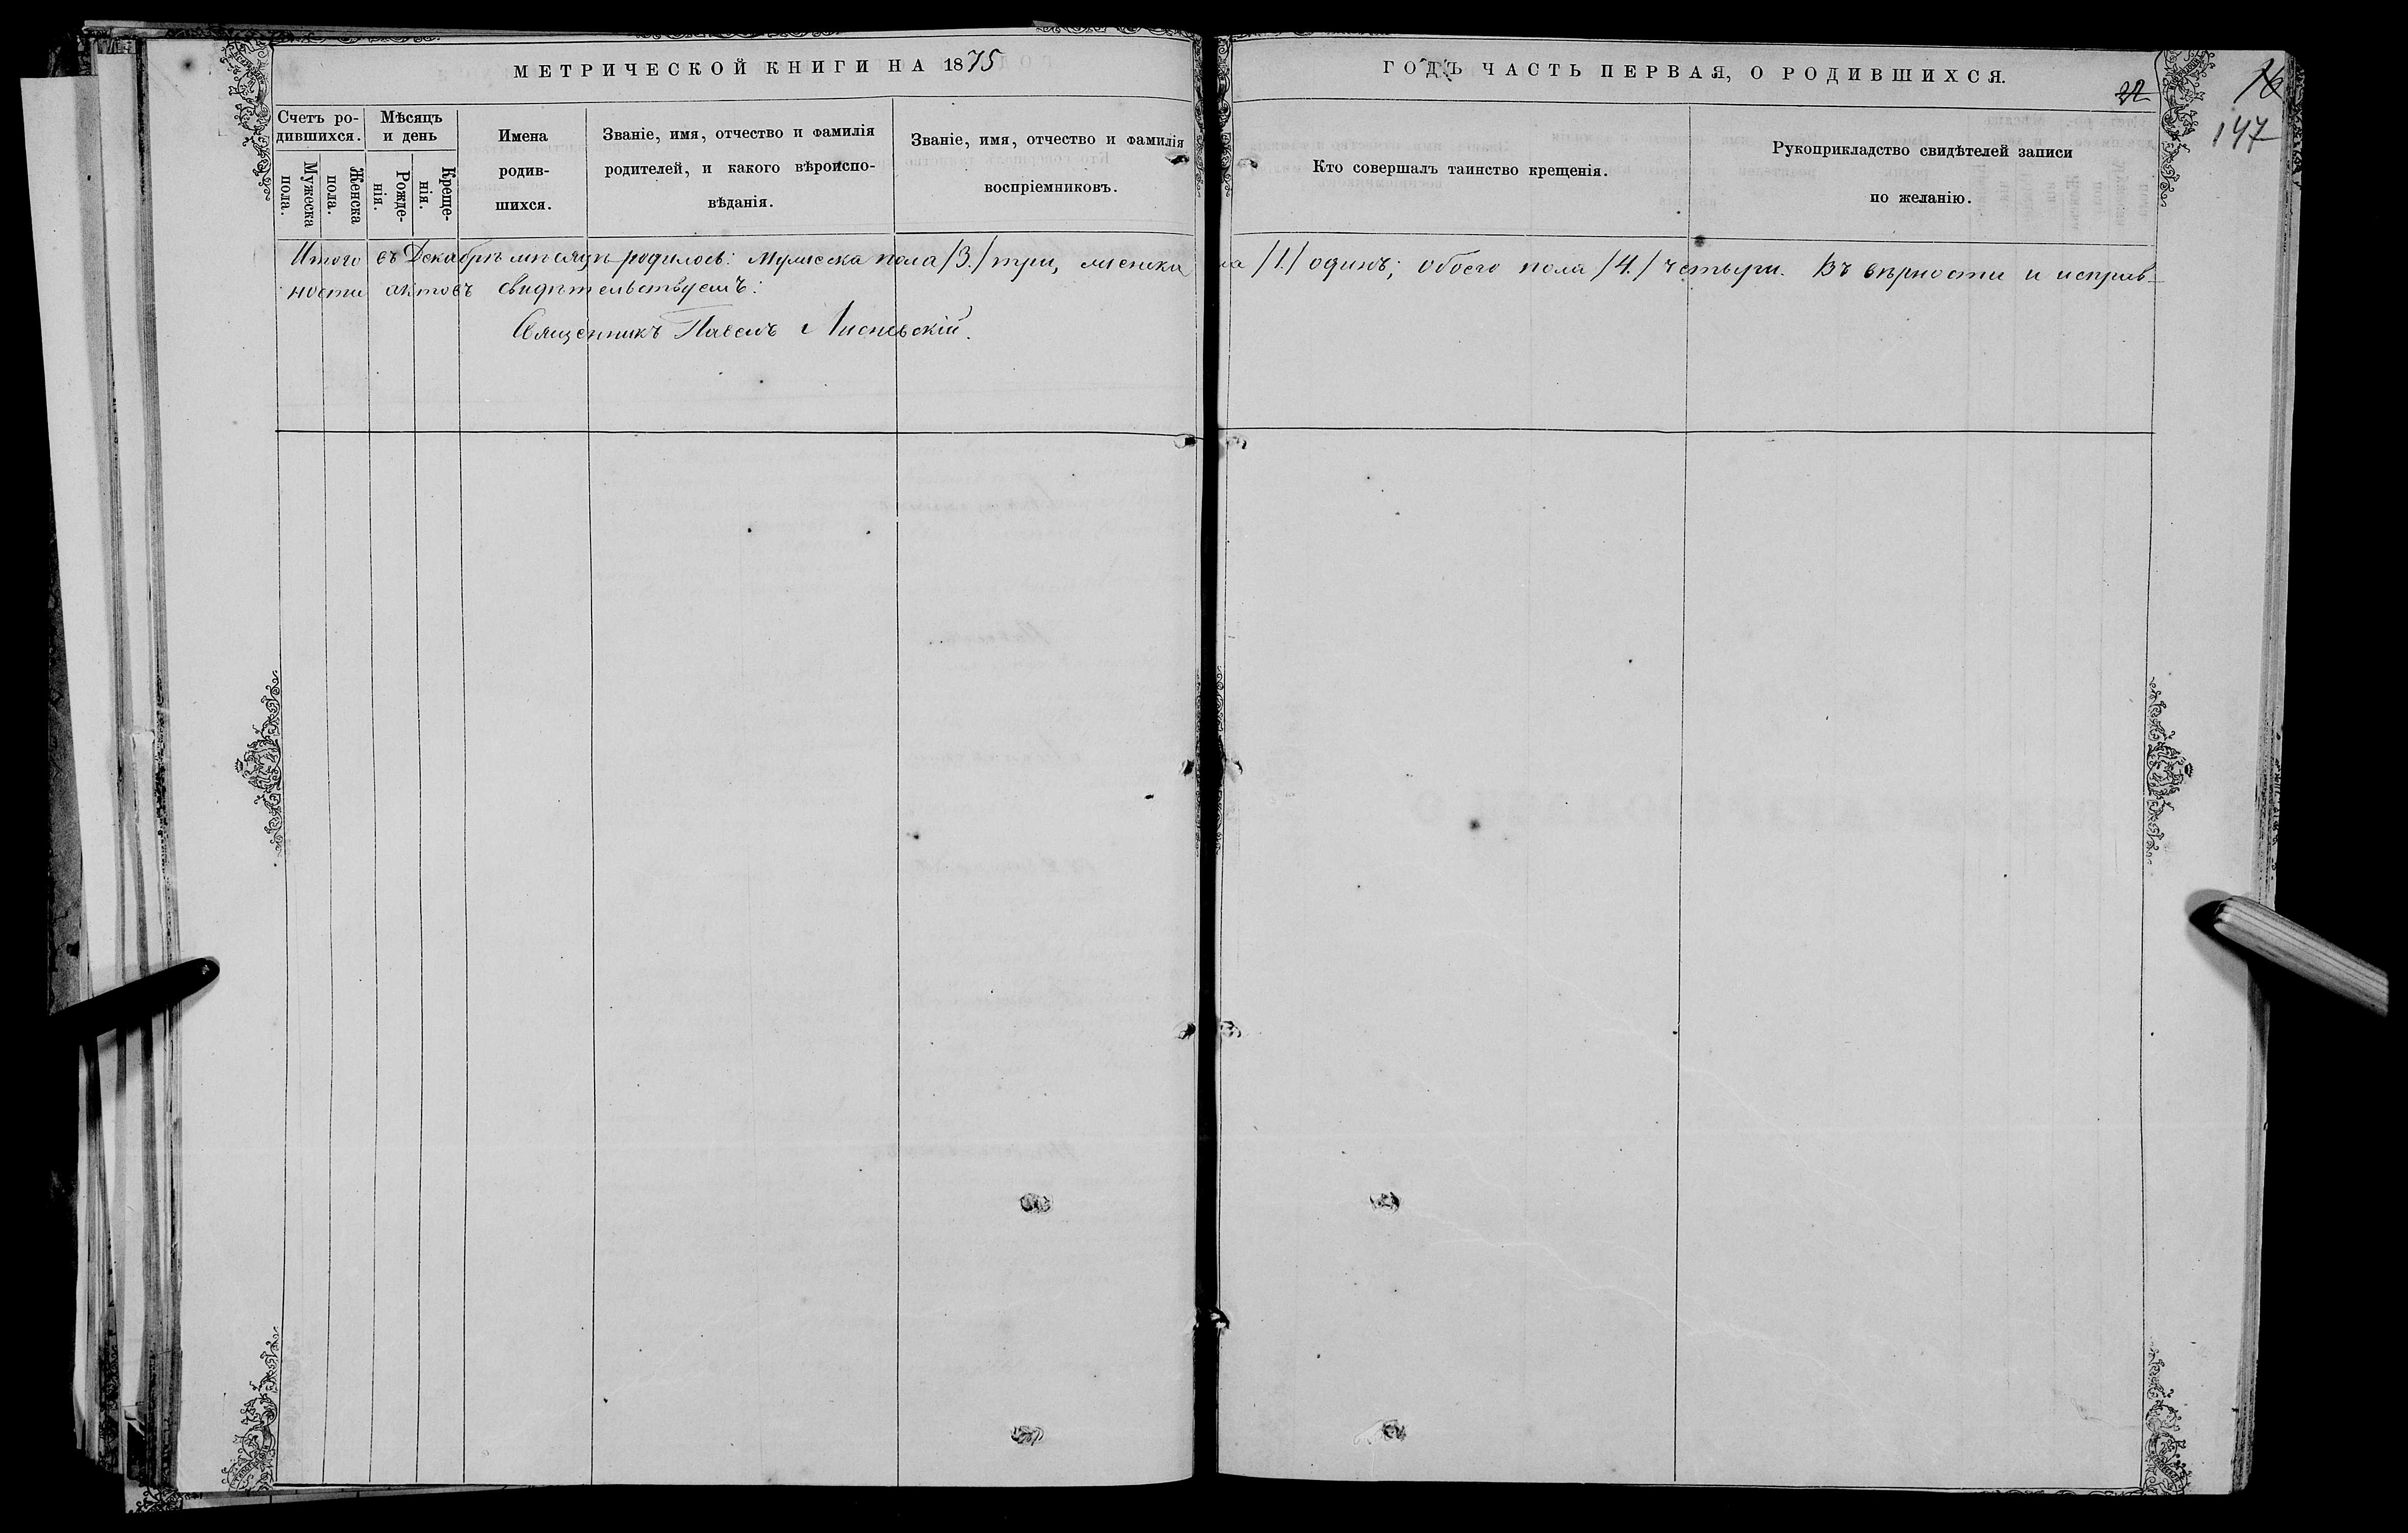 МЕТРИЧЕСКОЙ КНИГИ НА 1875
ГОДЪ ЧАСТЬ ПЕРВАЯ, О РОДИВШИХСЯ.
22
147
Счетъ ро-
дившихся.
Мужеска
пола.
Женска
пола.
Мѣсяцъ
и день
Рожде-
нія.
Креще-
нія.
Имена
родив-
шихся.
Званіе, имя, отчество и фамилія
родителей, и какого вѣроиспо-
вѣданія.
Званіе, имя, отчество и фамилія
воспріемниковъ.
Кто совершалъ таинство крещенія.
Рукоприкладство свидѣтелей записи
по желанію.
Итого въ Декабрѣ мѣсяцѣ родилось: мужеска пола /3./ три, женска ла /1./ одинъ; обоего пола /4./ четыри. Въ вѣрности и исправ-
ности актовъ свидѣтельствуемъ:
Священникъ Павелъ Лисневскій.